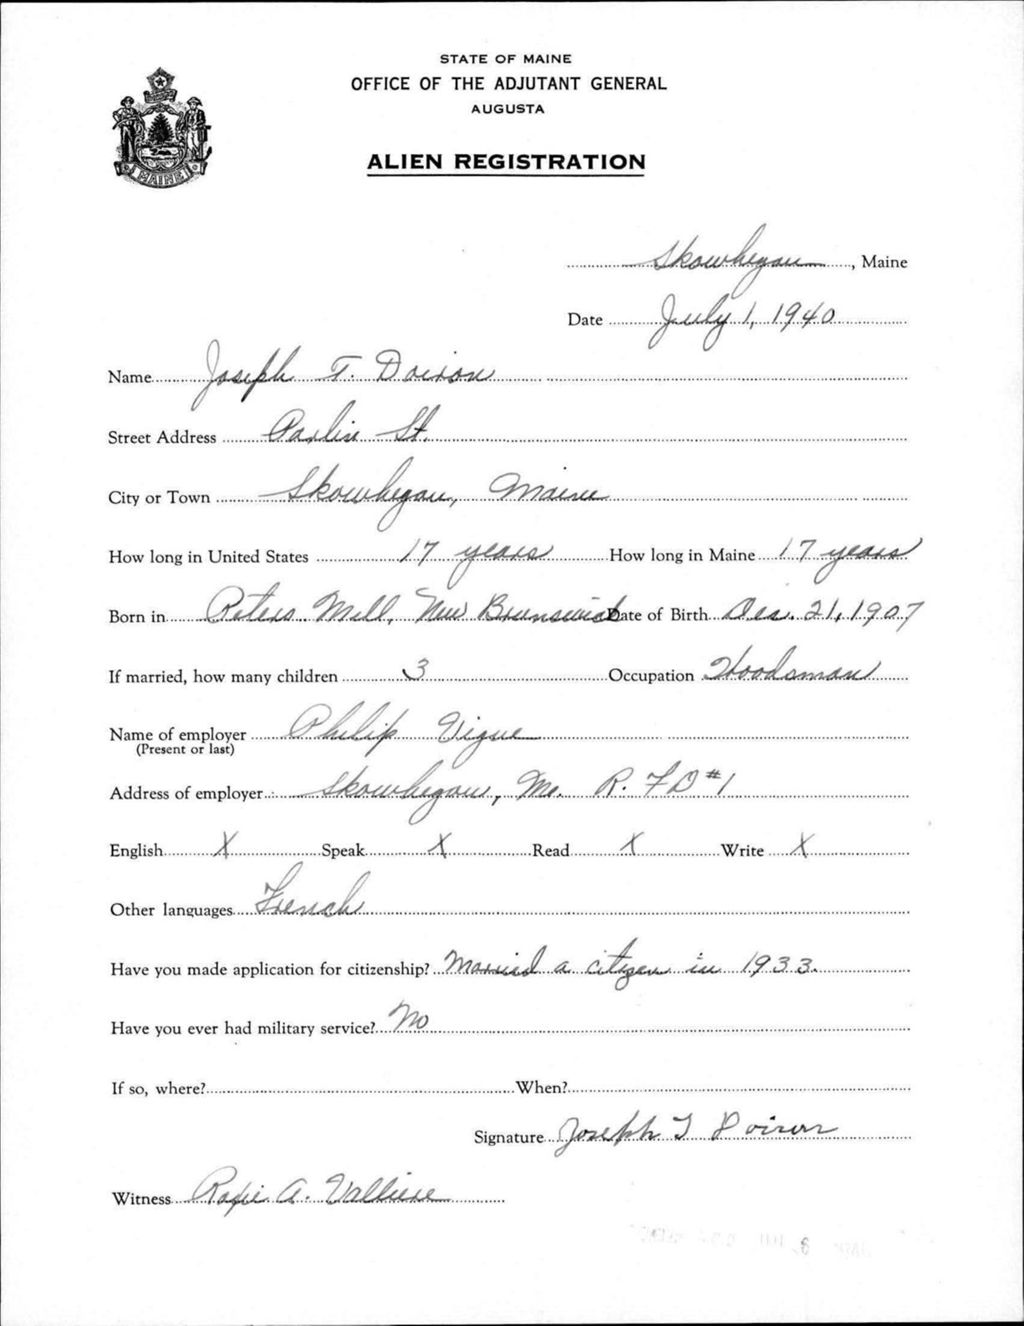 STATE OF MAINE
OFFICE OF THE ADJUTANT GENERAL
AUGUSTA
MAINE
ALIEN REGISTRATION
Skowhegan, Maine
Date July 1, 1940
Name Joseph T. Doiron
Street Address Parlin St.
City or Town Skowhegan, Maine
How long in United States 17 years How long in Maine 17 years
Born in Peters Mill, New Brunswick Date of Birth Dec. 21, 1907
If married, how many children 3 Occupation Woodsman
Name of employer Philip Vigue
(Present or last)
Address of employer Skowhegan, Me. R. F D #1
English X Speak X Read X Write X
Other languages French
Have you made application for citizenship? Married a citizen in 1933.
Have you ever had military service? No
If so, where? When?
Signature Joseph T Doiron
Witness A. Valliere